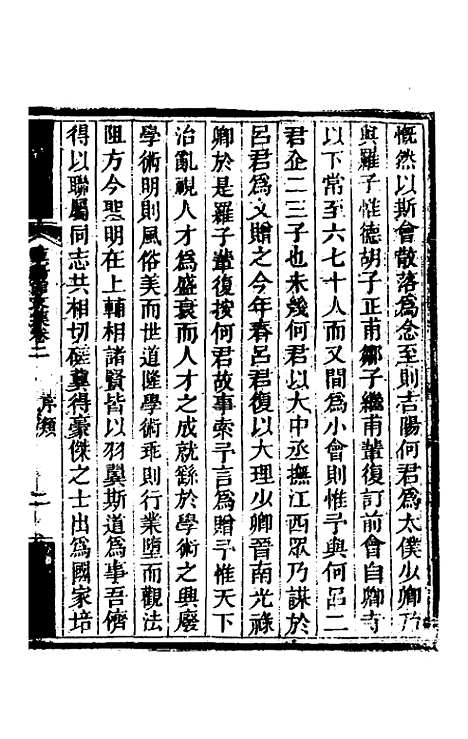 慨然以斯會散落爲念至則吉陽何君爲太僕少卿乃
與羅子惟德胡子正甫鄒子繼甫輩復訂前會自卿寺
以下常至六七十人而又間爲小會則惟予與何呂二
君企二三子也未幾何君以大中丞撫江西眾乃謀於
呂君爲文贈之今年春呂君復以大理少卿晉南光祿
卿於是羅子輩復按何君故事索予言爲贈予惟天下
治亂視人才爲盛衰而人才之成就繇於學術之興廢
學術明則風俗美而世道隆學術乖則行業墮而觀法
阻方今聖明在上輔相諸賢皆以羽翼斯道爲事吾儕
得以聯屬同志共相切磋冀得豪傑之士出爲國家培
卷二
序類
二